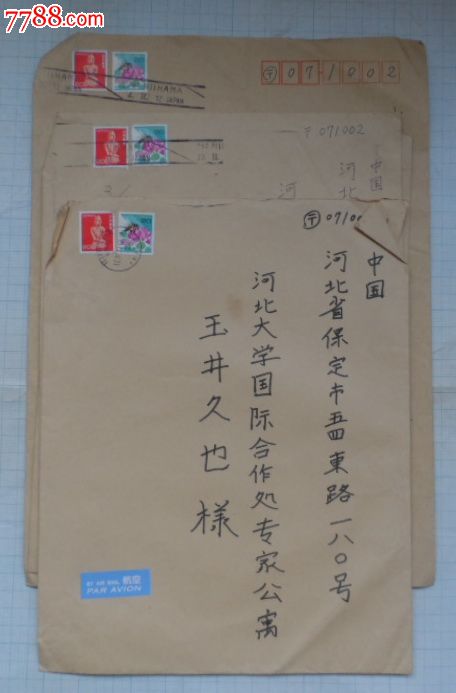 7788.com
〒071002
〒071002
中国
河北
河
〒0710
中国
河北省保定市五四東路一八〇号
河北大学国际合作处专家公寓
玉井久也様
BY AIR MAIL 航空
PAR AVION